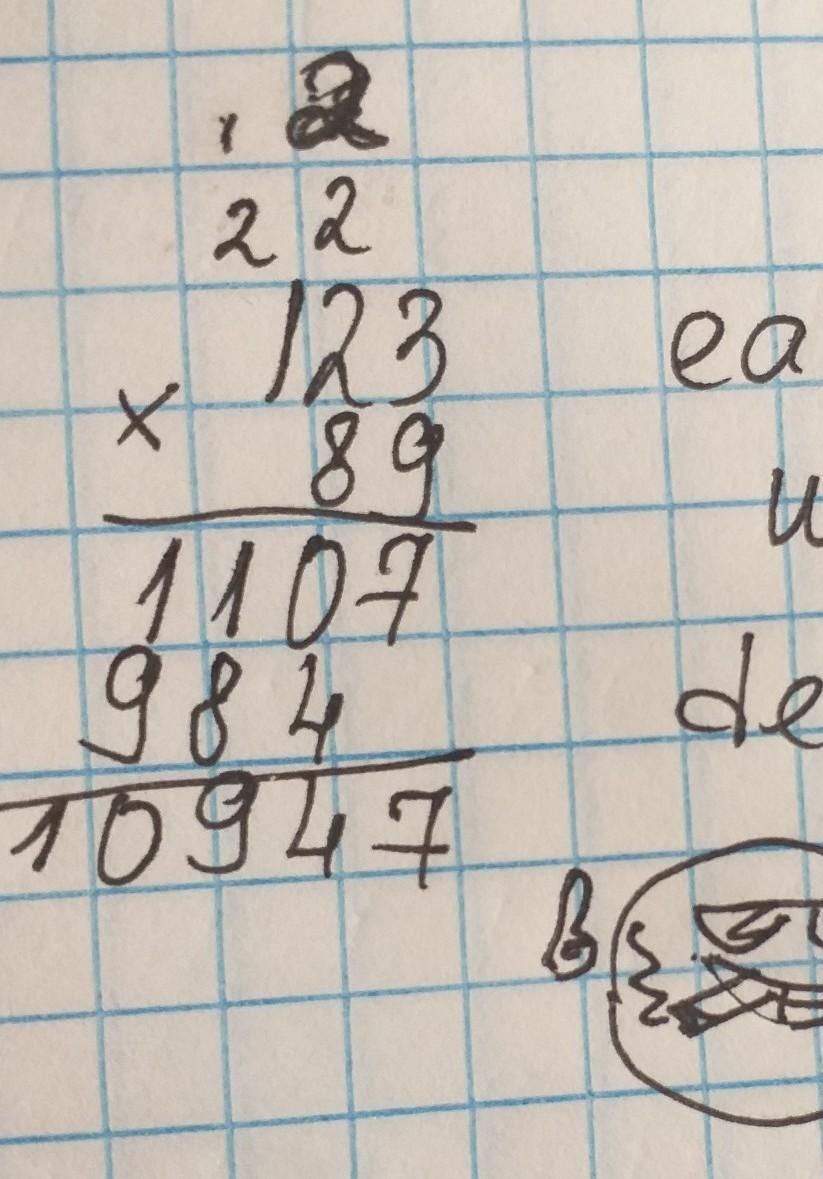 1 2
2 2
123
× 89
1107
984
10947
ea
u
de
B